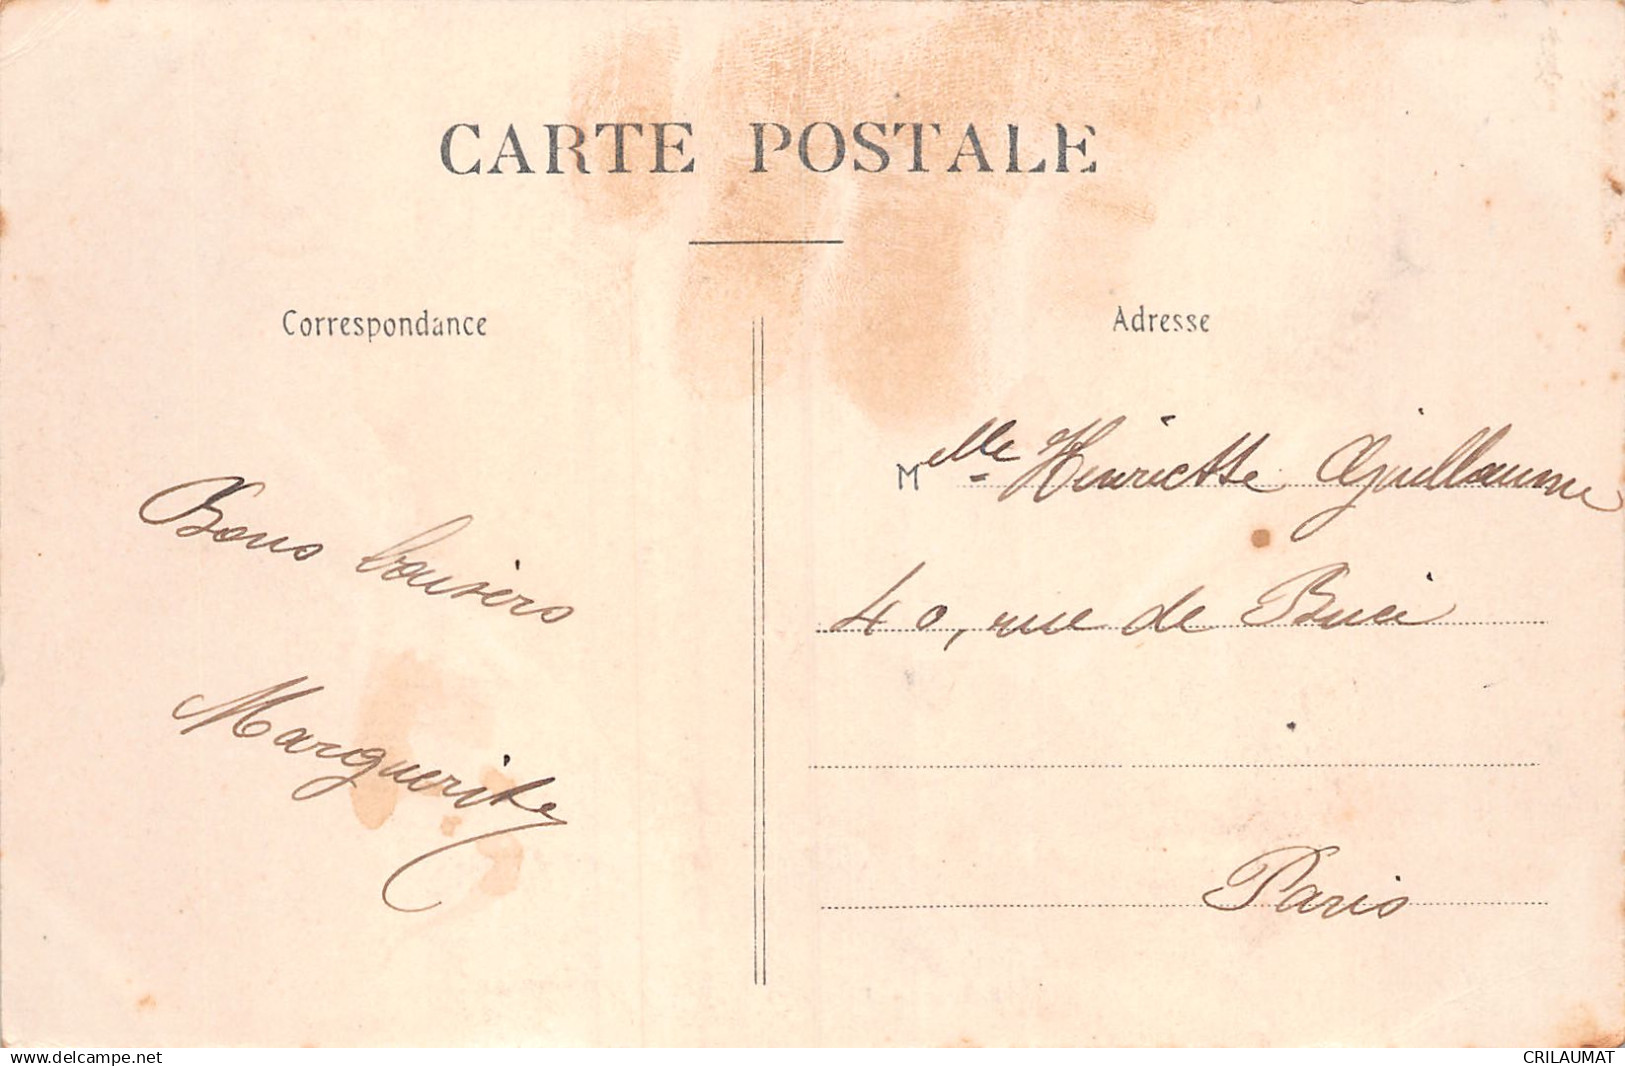 CARTE POSTALE
Correspondance
Adresse
Bons baisers
Marguerite
Melle Henriette Guillaume
40, rue de Buci
Paris
www.delcampe.net
CRILAUMAT